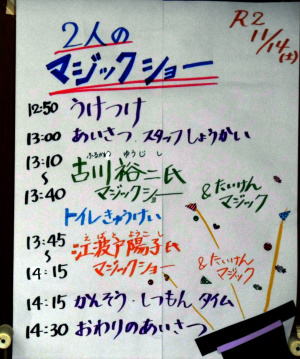 R2
11/14(土)
2人の
マジックショー
12:50 うけつけ
13:00 あいさつ スタッフしょうかい
13:10
~
13:40
ふるかわ ゆうじ し
古川裕二氏
マジックショー
&たいけん
マジック
トイレきゅうけい
13:45
~
14:15
えばと ようこ し
江波戸陽子氏
マジックショー
&たいけん
マジック
14:15 かんそう・しつもんタイム
14:30 おわりのあいさつ